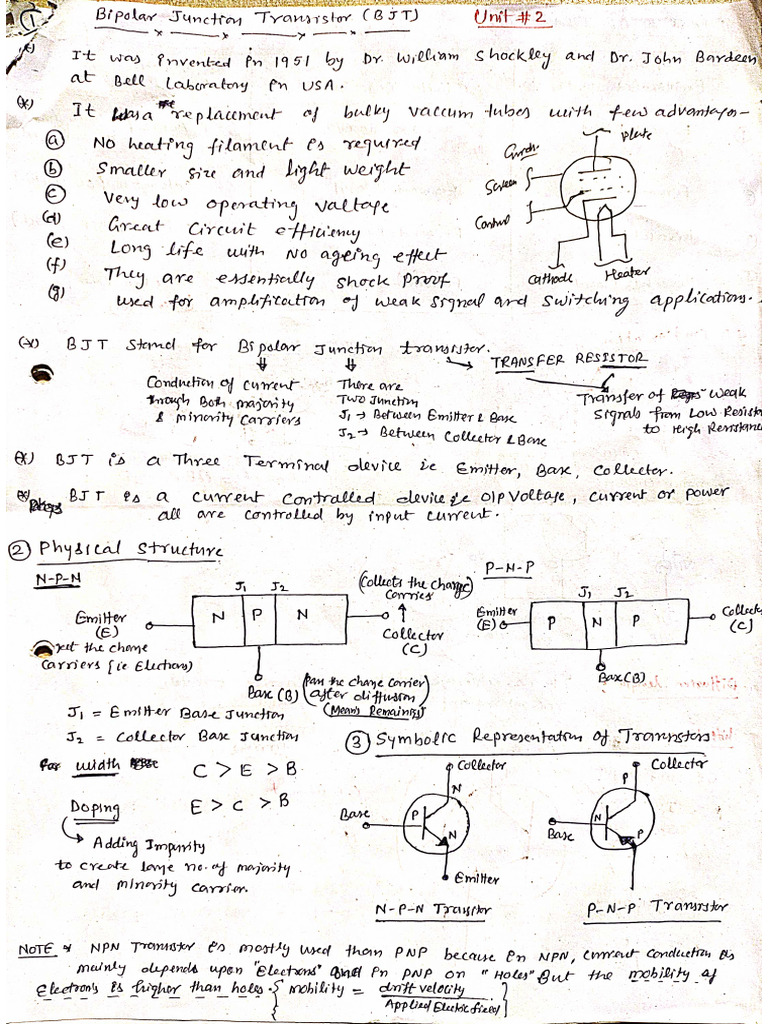 1 Bipolar Junction Transistor (BJT) Unit #2
(*) It was invented in 1951 by Dr. William Shockley and Dr. John Bardeen
at Bell Laboratory in USA.
(*) It was a replacement of bulky vaccum tubes with few advantages-
(a) No heating filament is required
(b) Smaller size and light weight
(c) Very low operating valtage
(d) Great Circuit efficiency
(e) Long life with No ageing effect
(f) They are essentially shock proof
(g) used for amplification of weak signal and switching applications.
plate
Screen
Control
Cathode Heater
(*) BJT Stand for Bipolar Junction transistor. → TRANSFER RESISTOR
Conduction of current
through Both majority
& minority Carriers
There are
Two Junction
J1 → Between Emitter & Base
J2 → Between Collector & Base
Transfer of weak
signals from Low Resist
to High Resistance
(*) BJT is a Three Terminal device ie Emitter, Base, Collector.
(*) BJT is a current controlled device ie O/P Voltage, current or power
all are controlled by input current.
2 Physical Structure
N-P-N
J1 J2
N P N
Emitter
(E)
the charge
Carriers (ie Electrons)
(Collects the charge)
Carries
Collector
(C)
Base (B)
(Pass the charge Carrier
after diffusion
(Means Remaining)
P-N-P
J1 J2
P N P
Emitter
(E)
Collect
(C)
Base (B)
J1 = Emitter Base Junction
J2 = Collector Base Junction
For width C > E > B
Doping E > C > B
→ Adding Impurity
to create large no. of majority
and minority carrier.
3 Symbolic Representation of Transistors
Collector
N
Base P
N
Emitter
N-P-N Transistor
Collector
P
Base N
P
P-N-P Transistor
NOTE * NPN Transistor is mostly used than PNP because in NPN, current conduction is
mainly depends upon "Electrons" and in PNP on "Holes" But the mobility of
Electrons is higher than holes. { mobility = drift velocity / Applied Electric field }